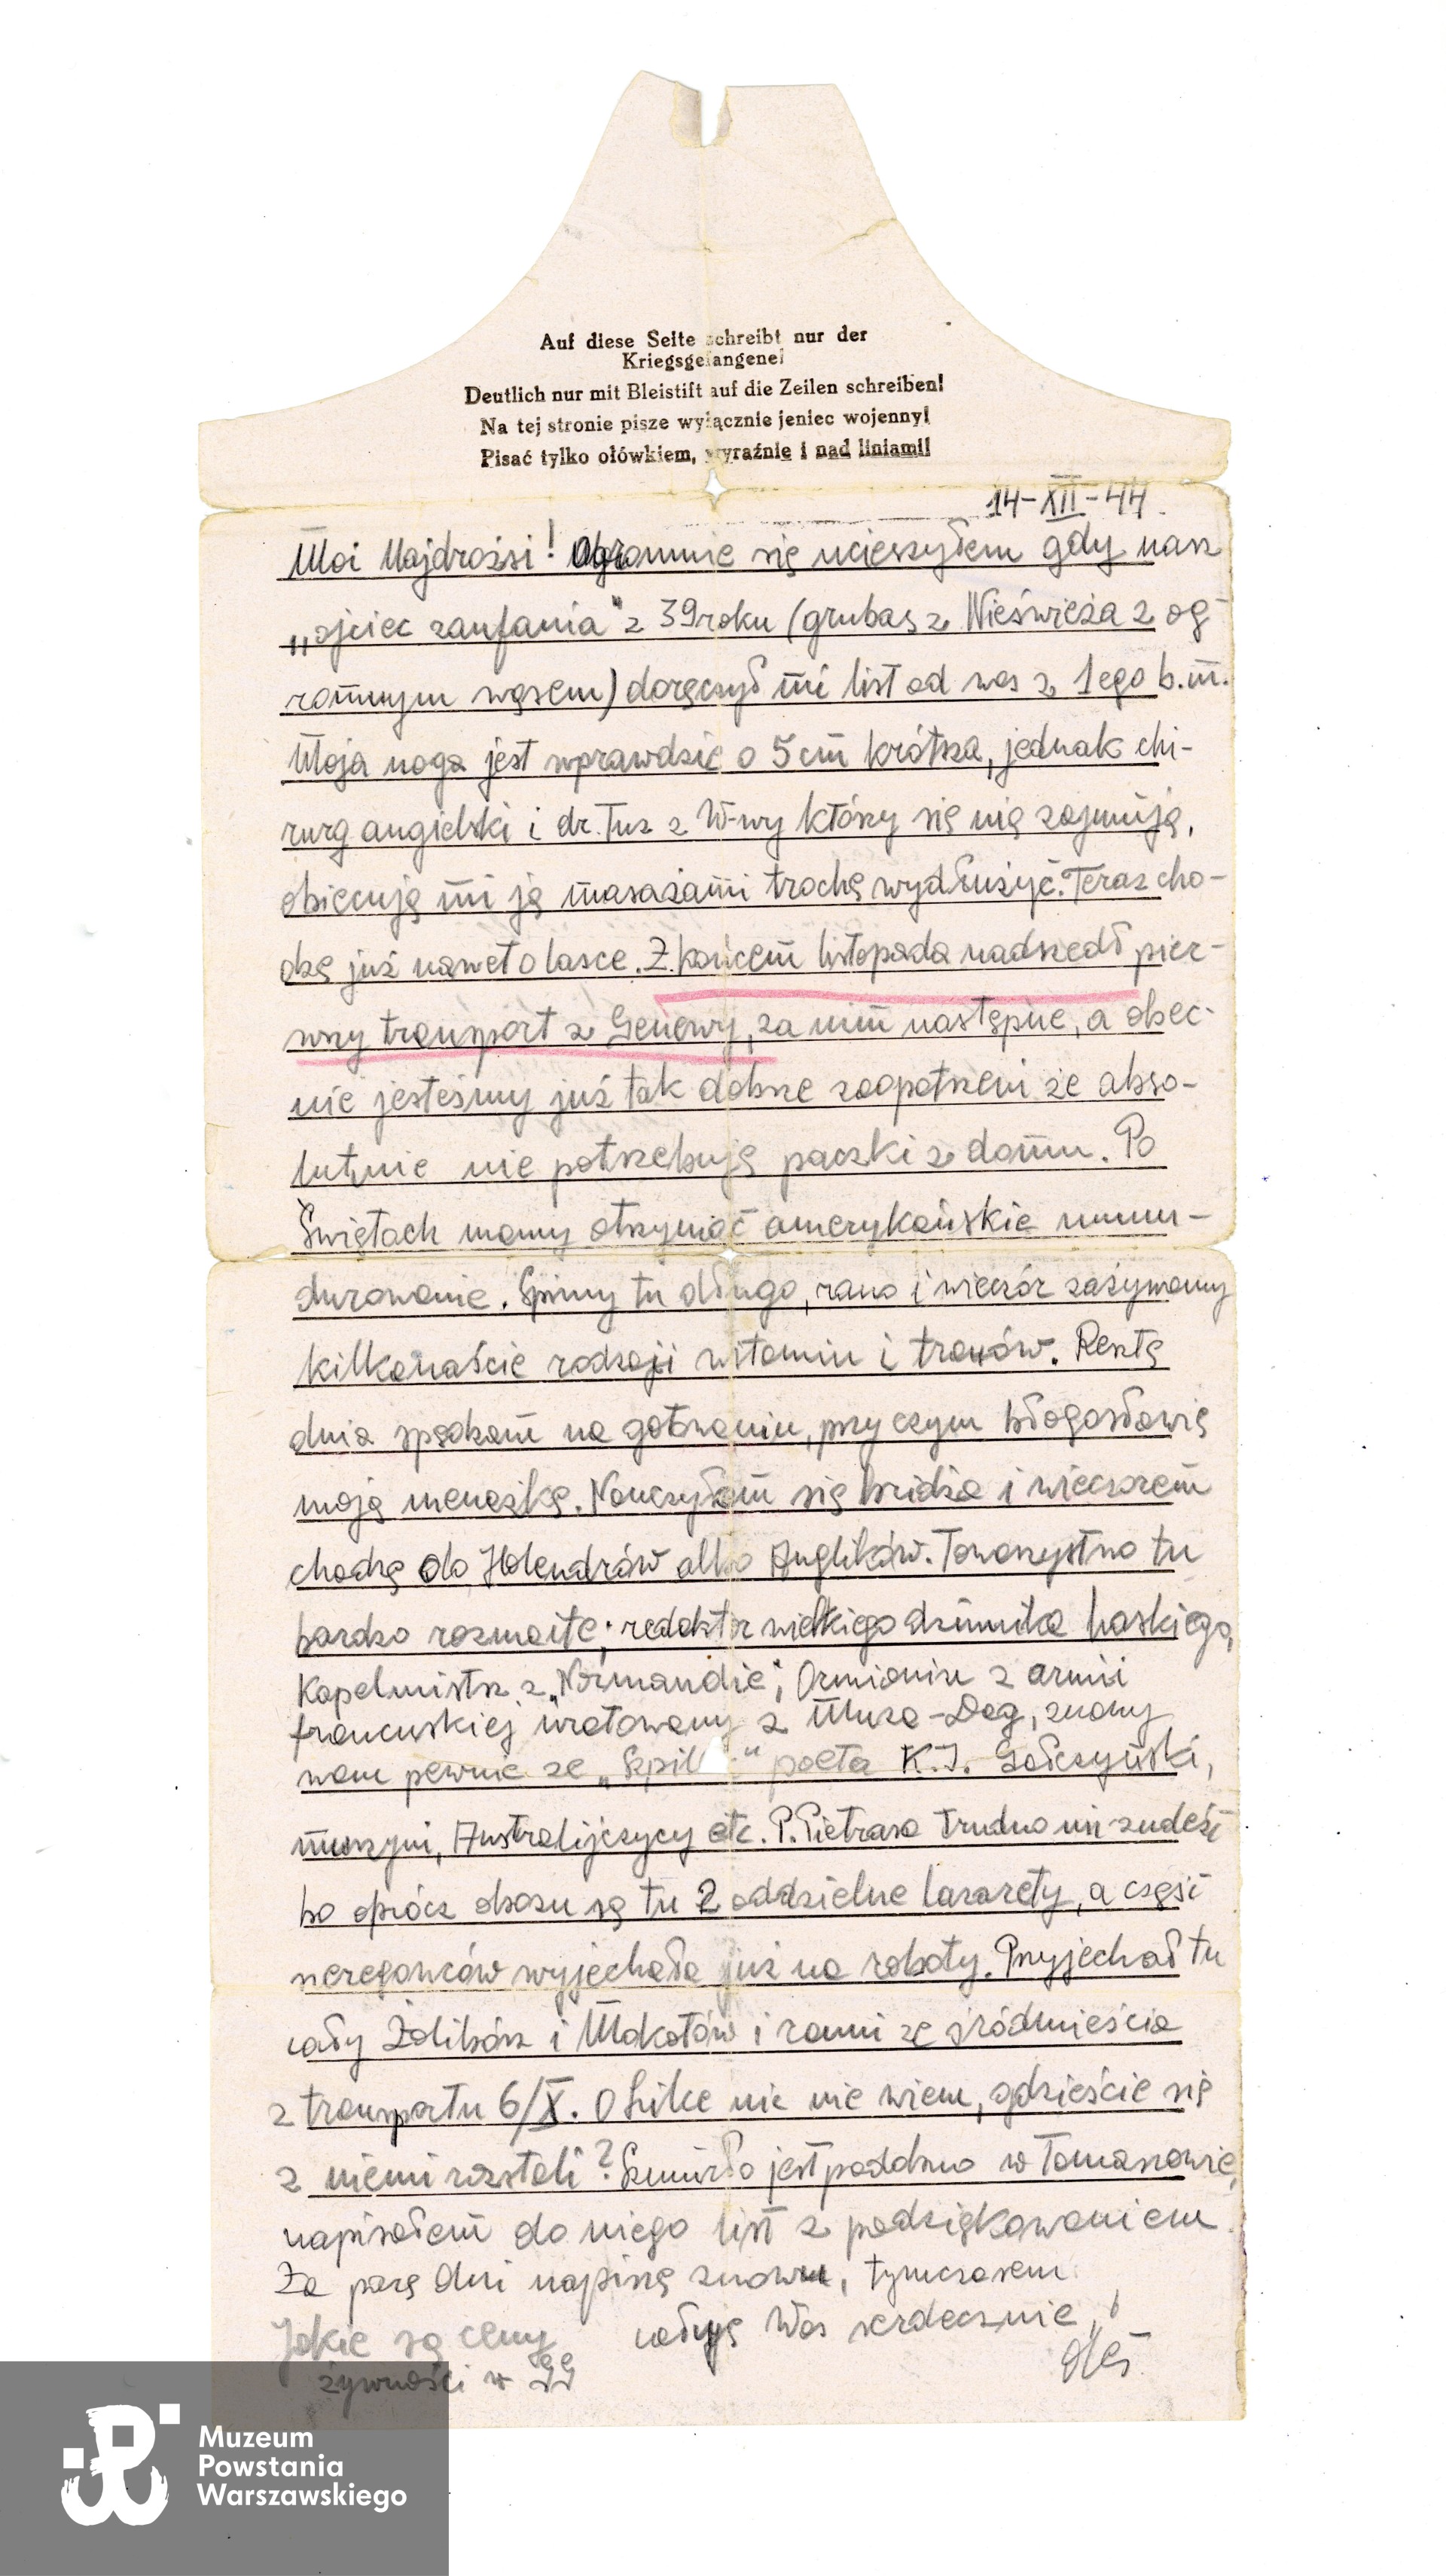 Auf diese Seite schreibt nur der
Kriegsgefangene!
Deutlich nur mit Bleistift auf die Zeilen schreiben!
Na tej stronie pisze wyłącznie jeniec wojenny!
Pisać tylko ołówkiem, wyraźnie i nad liniami!
14-XII-44.
Moi Najdrożsi! Ogromnie się ucieszyłem gdy nasz
„ojciec zaufania" z 39 roku (grubas z Nieświeża z og-
romnym wąsem) doręczył mi list od was z 1ego b.m.
Moja noga jest wprawdzie o 5 cm krótsza, jednak chi-
rurg angielski i dr. Tuz z W-wy którzy się nią zajmują,
obiecują mi ją masażami trochę wydłużyć. Teraz cho-
dzę już nawet o lasce. Z końcem listopada nadszedł pier-
wszy transport z Genewy, za nim następne, a obec-
nie jesteśmy już tak dobrze zaopatrzeni że abso-
lutnie nie potrzebuję paczki z domu. Po
Świętach mamy otrzymać amerykańskie umun-
durowanie. Śpimy tu długo, rano i wieczór zażywamy
kilkanaście rodzaji witamin i tranów. Resztę
dnia spędzam na gotowaniu, przy czym błogosławię
moją menażkę. Nauczyłem się bridża i wieczorem
chodzę do Holendrów albo Anglików. Towarzystwo tu
bardzo rozmaite; redaktor wielkiego dziennika haskiego,
Kapelmistrz z „Normandie", Ormianin z armii
francuskiej uratowany z Musa-Dag, znany
wam pewnie ze „Szpilek" poeta K.I. Gałczyński,
murzyni, Australijczycy etc. P. Pietrasa trudno mi znaleźć
bo oprócz obozu są tu 2 oddzielne lazarety, a część
szeregowców wyjechała już na roboty. Przyjechał tu
cały Żolibórz i Mokotów i ranni ze śródmieścia
z transportu 6/X. O Lilce nic nie wiem, gdzieście się
z niemi rozstali? Szmurło jest podobno w Tomaszowie,
napisałem do niego list z podziękowaniem.
Za parę dni napiszę znowu, tymczasem
całuję Was serdecznie!
Jakie są ceny
żywności w GG
Oleś
Muzeum
Powstania
Warszawskiego